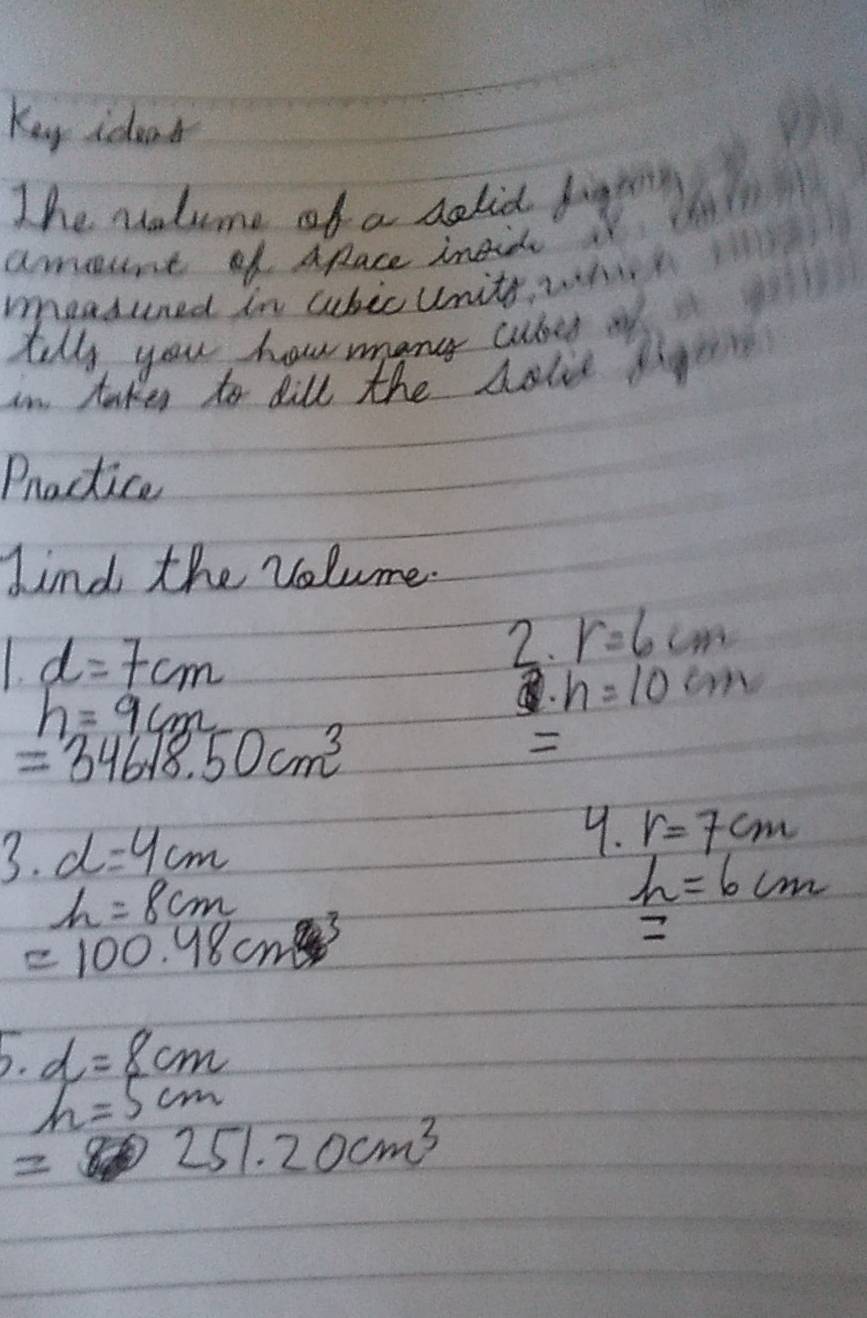 Key ideas
The volume of a solid figure
amount of space inside it.
measured in cubic units, which
tells you how many cubes of a
in takes to dill the solid figure.
Practice
Find the Volume.
1. d=7cm
h=9cm
=34618.50cm³
2. r=6cm
h=10cm
=
3. d=4cm
h=8cm
=100.48cm³
4. r=7cm
h=6cm
=
5. d=8cm
h=5cm
= 251.20cm³